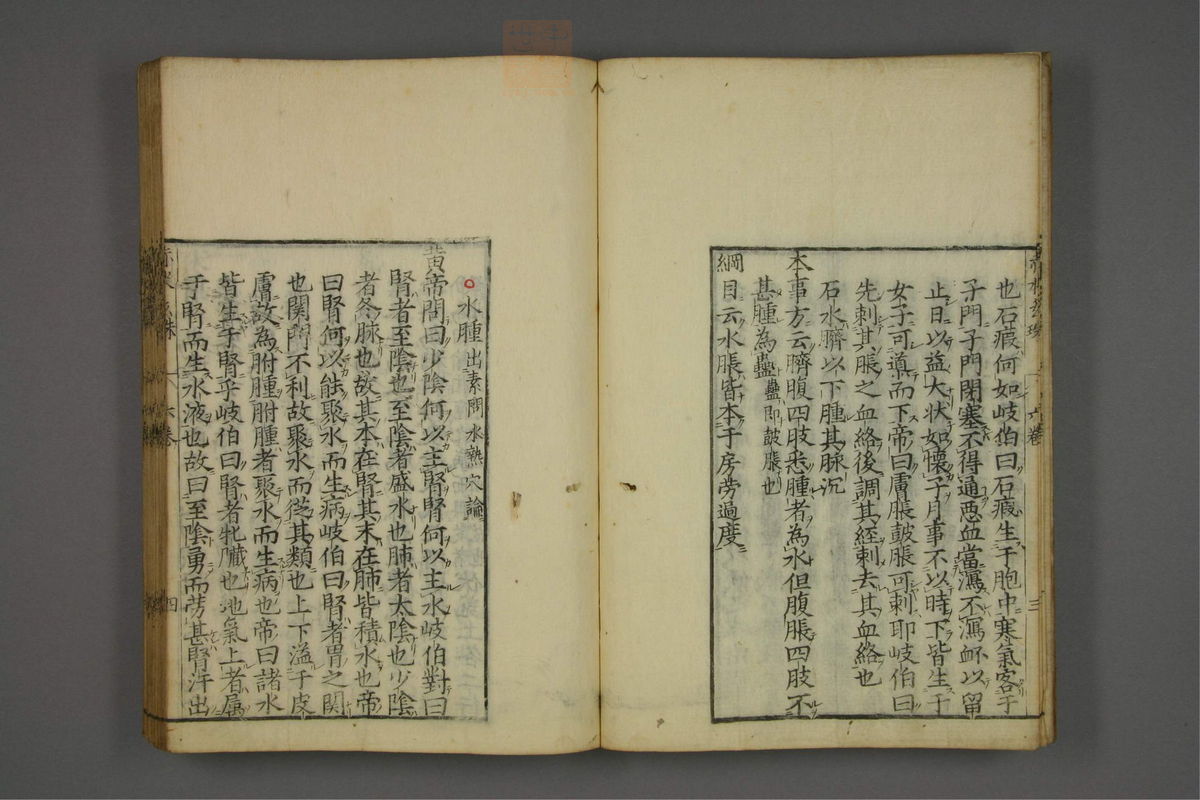 也石瘕何如岐伯曰石瘕生于胞中寒氣客于
子門子門閉塞不得通惡血當瀉不瀉衃以留
止日以益大状如懷子月事不以時下皆生于
女子可導而下帝曰膚脹鼓脹可刺耶岐伯曰
先刺其脹之血絡後調其經刺去其血絡也
石水臍以下腫其脉沉
本事方云臍腹四肢悉腫者為水但腹脹四肢不
甚腫為蠱蠱即鼓脹也
綱目云水脹皆本于房勞過度
水腫出素問水熱穴論
黄帝問曰少陰何以主腎腎何以主水岐伯對曰
腎者至陰也至陰者盛水也肺者太陰也少陰
者冬脉也故其本在腎其末在肺皆積水也帝
曰腎何以能聚水而生病岐伯曰腎者胃之関
也関門不利故聚水而從其類也上下溢于皮
膚故為胕腫胕腫者聚水而生病也帝曰諸水
皆生于腎乎岐伯曰腎者牝臓也地氣上者属
于腎而生水液也故曰至陰勇而勞甚腎汗出
六卷
四